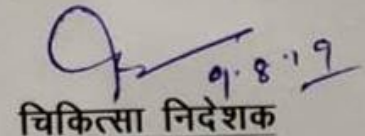 9.8.19
चिकित्सा निदेशक